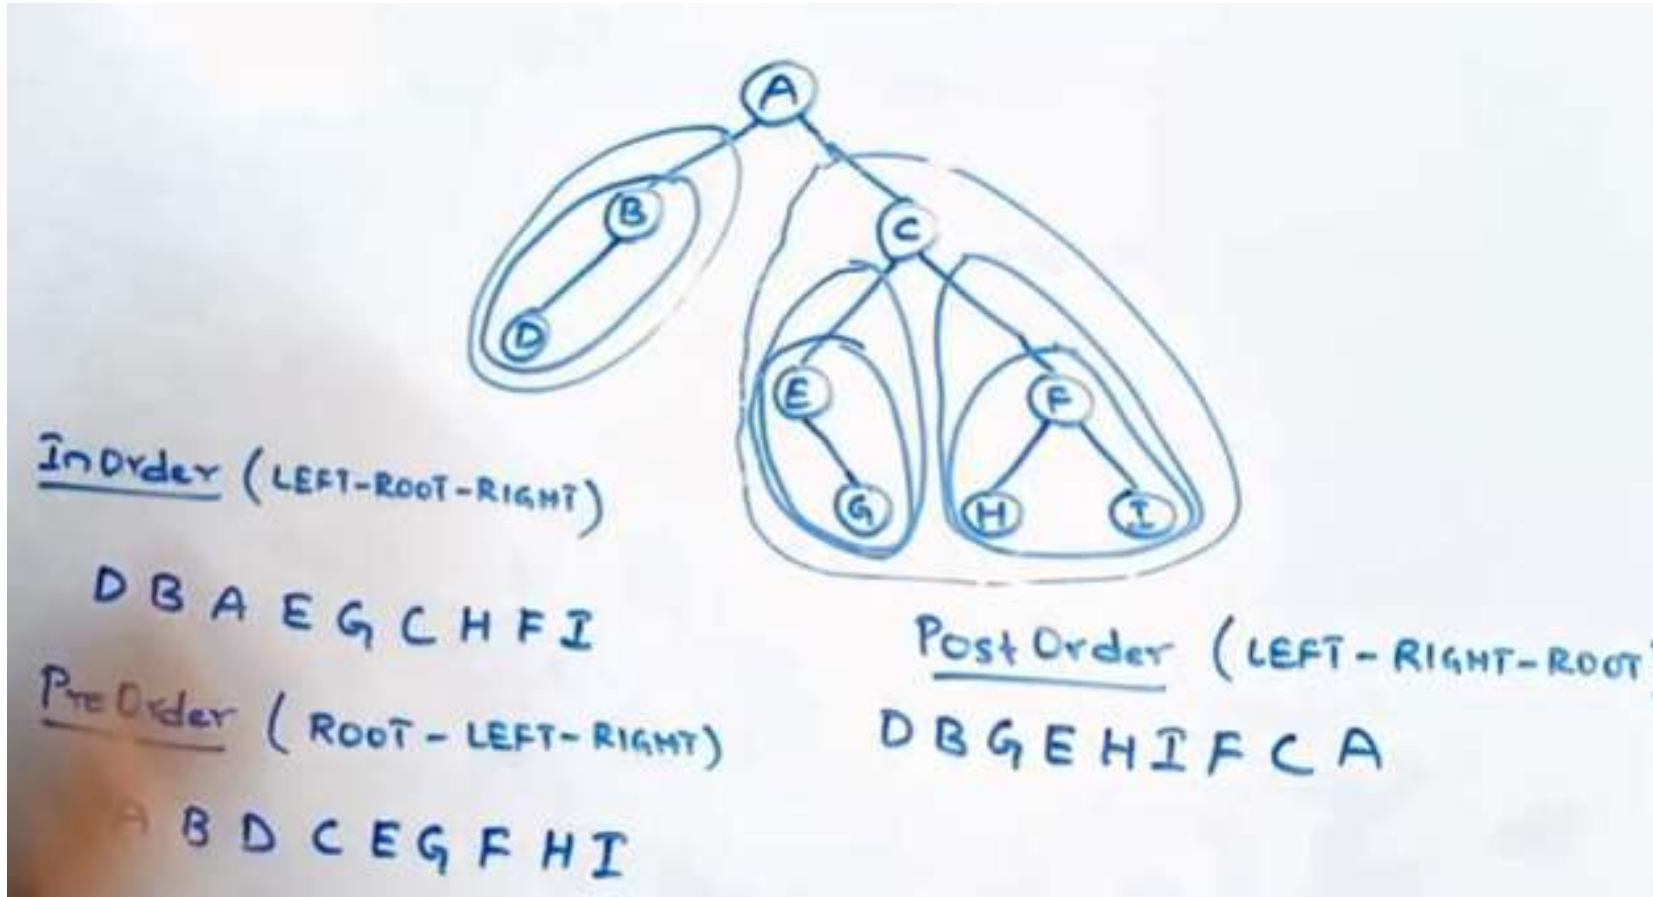 A
B
C
D
E
F
G
H
I
InOrder (LEFT-ROOT-RIGHT)
D B A E G C H F I
PreOrder (ROOT-LEFT-RIGHT)
A B D C E G F H I
PostOrder (LEFT-RIGHT-ROOT)
D B G E H I F C A